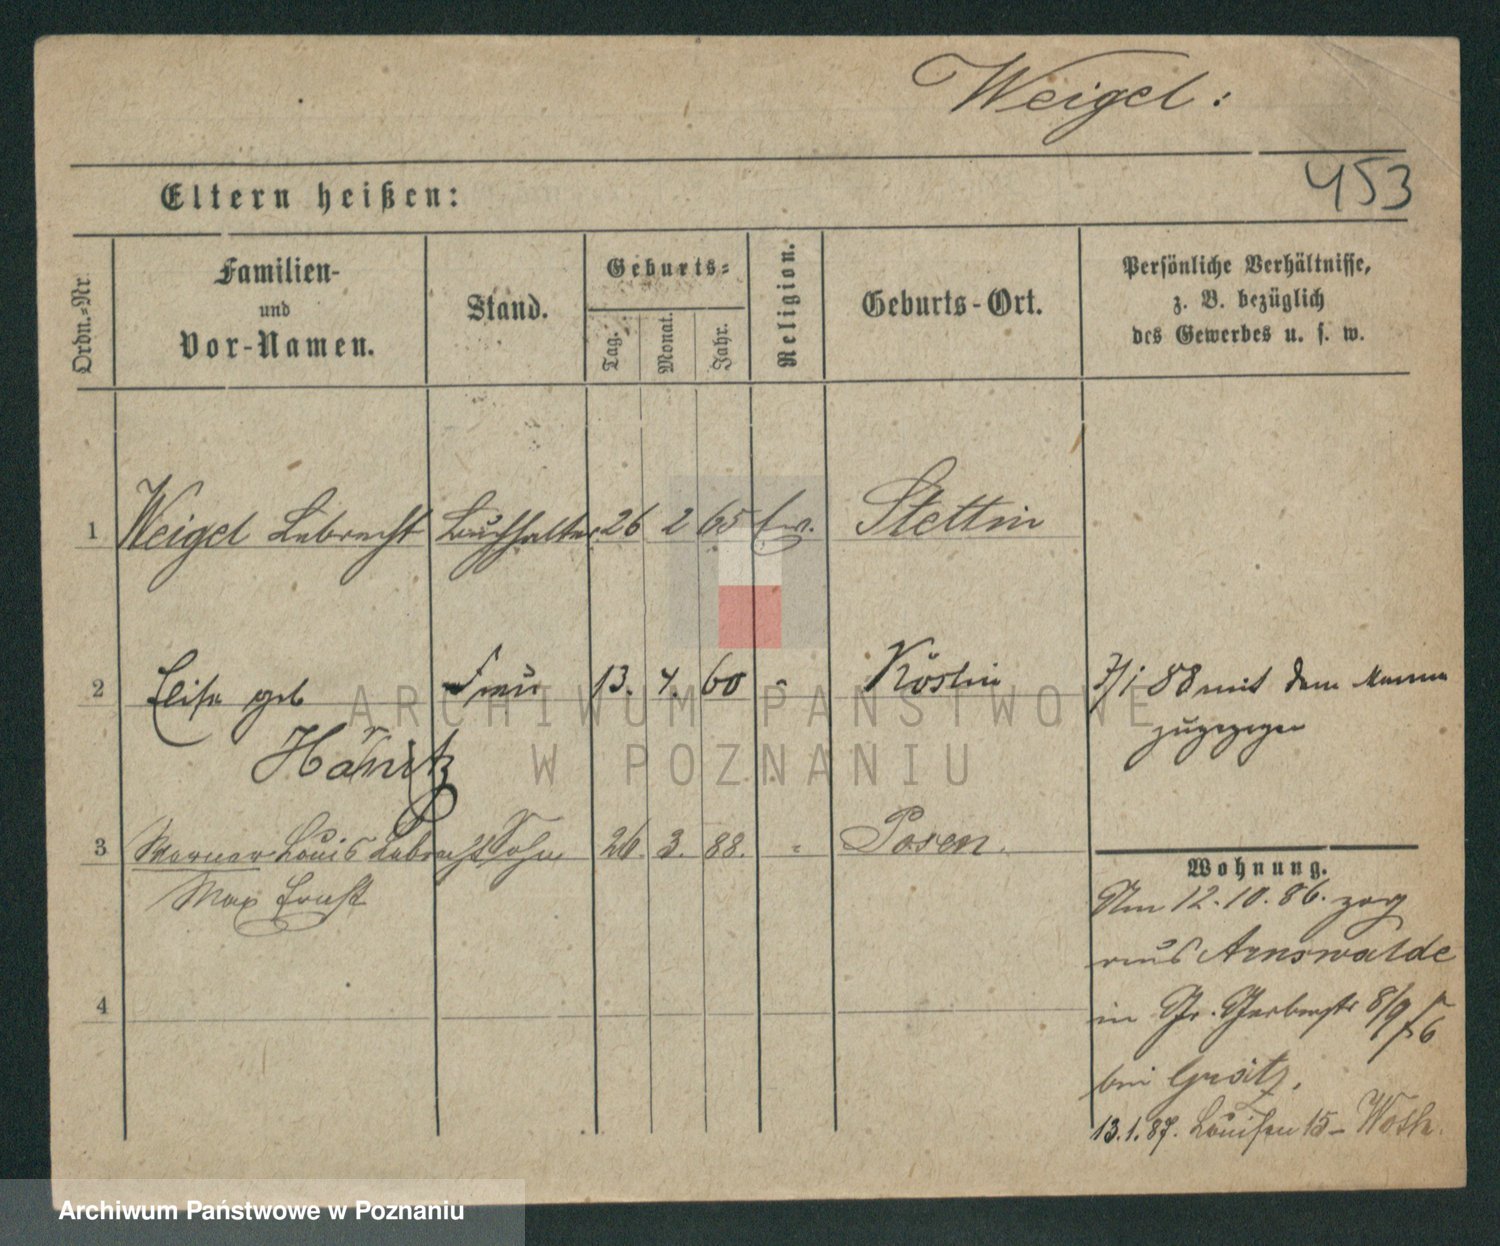 Weigel:
453
Eltern heißen:
Ordn.-Nr.
Familien-
und
Vor-Namen.
Stand.
Geburts-
Tag.
Monat.
Jahr.
Religion.
Geburts-Ort.
Persönliche Verhältnisse,
z. B. bezüglich
des Gewerbes u. s. w.
1 Weigel Lebrecht Buchhalter 26 2 65 Ev. Stettin
2 Elise geb Frau 13. 4. 60 " Köslin 3/1 88 mit dem Manne
zugezogen
3 Werner Louis Lebrecht Sohn 26. 3. 88. " Posen.
Max Ernst
4
Wohnung.
Am 12.10.86. zog
aus Arnswalde
in Gr. Gerberstr 8/9
bei
13.1.87. Louisen 15-
ARCHIWUM PAŃSTWOWE
W POZNANIU
Archiwum Państwowe w Poznaniu